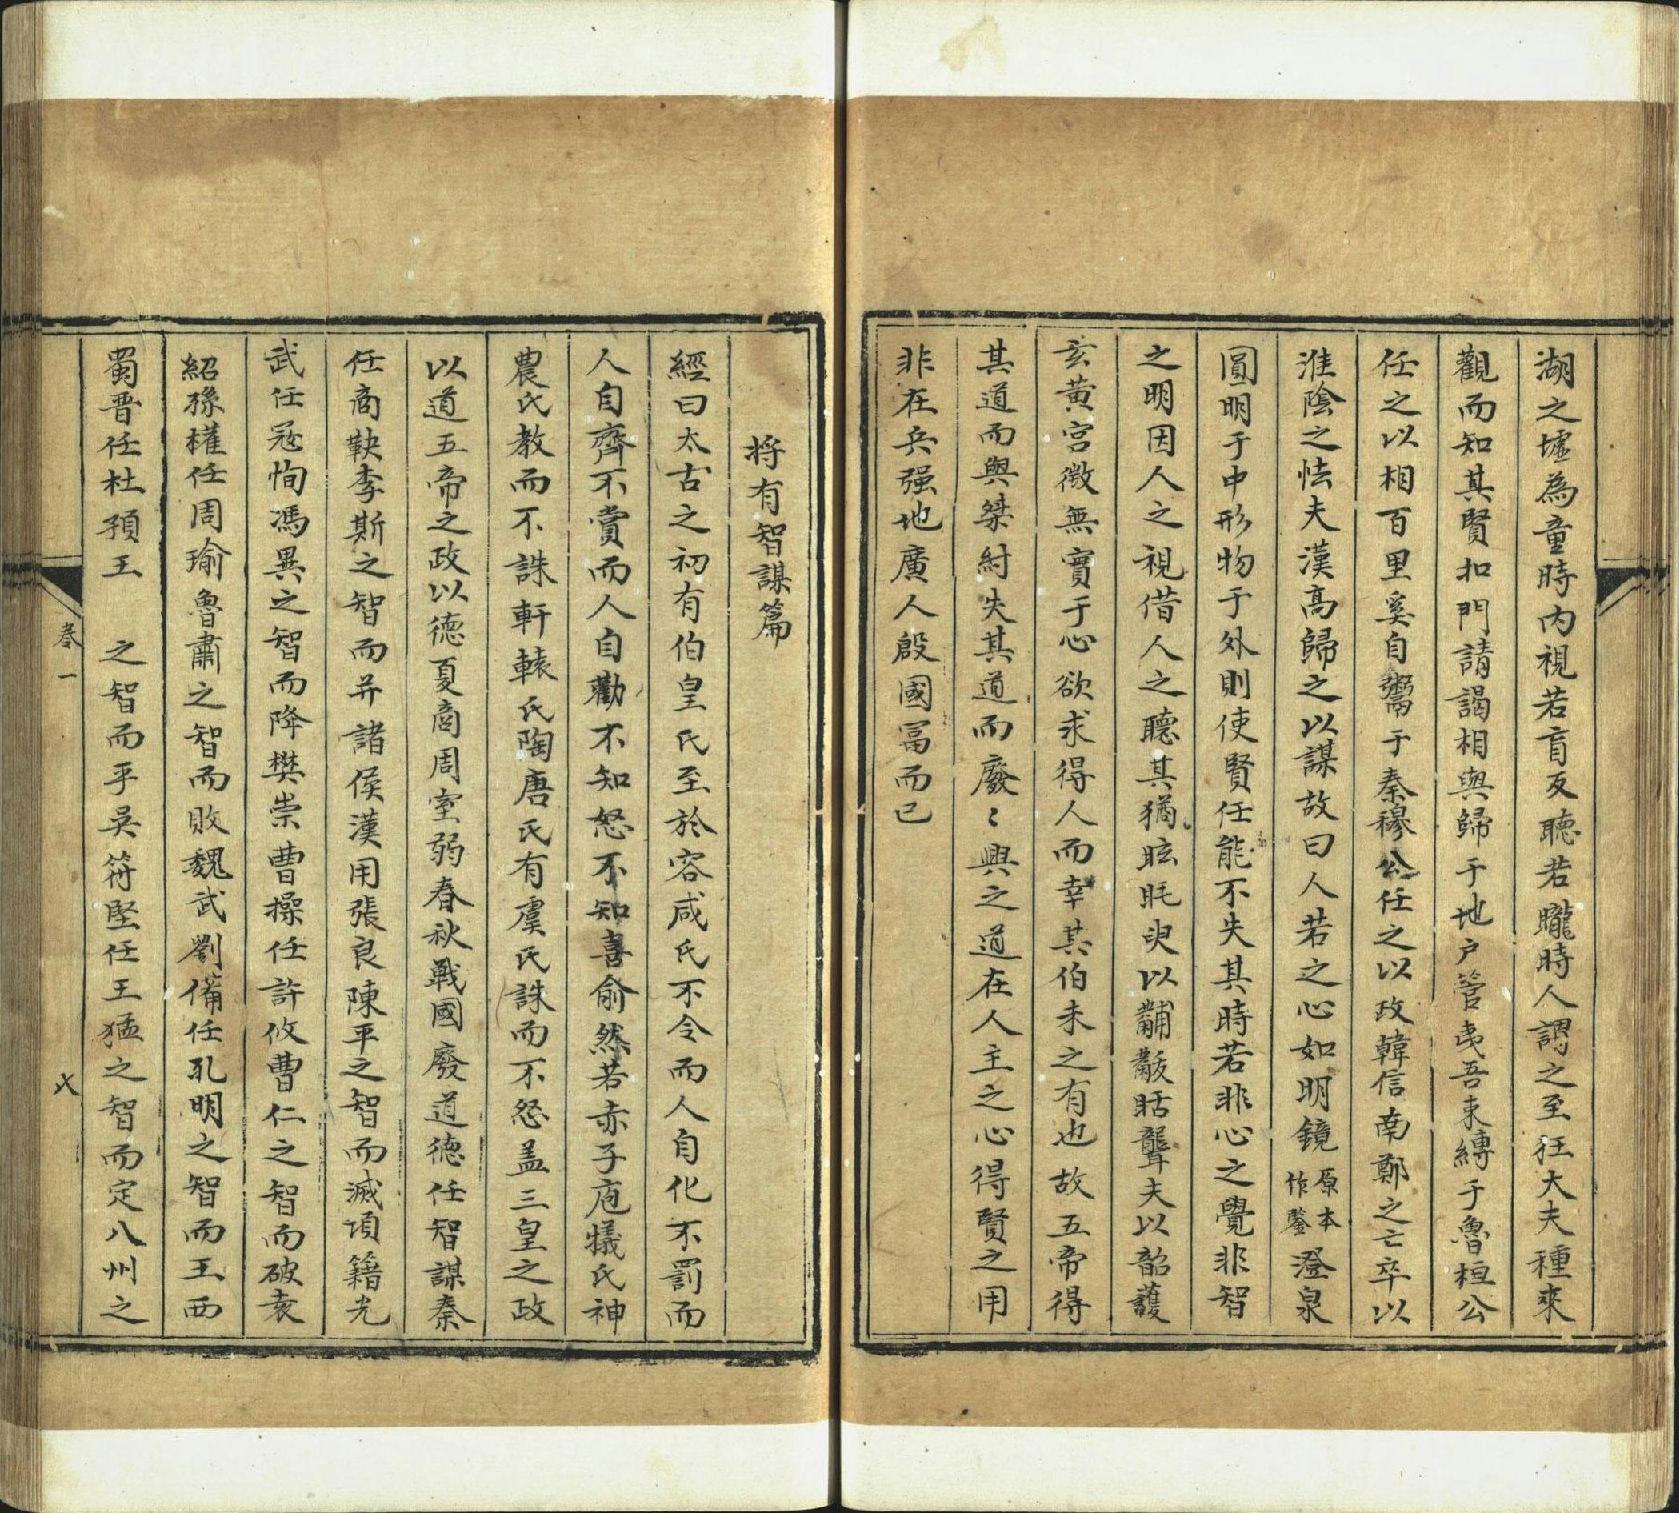 湖之墟為童時内視若盲反聽若矓時人謂之至狂大夫種來
觀而知其賢扣門請謁相與歸于地户管夷吾束縛于魯桓公
任之以相百里奚自鬻于秦穆公任之以政韓信南鄭之亡卒以
淮陰之怯夫漢高歸之以謀故曰人若之心如明鏡原本作鑒澄泉
圓明于中形物于外則使賢任能不失其時若非心之覺非智
之明因人之視借人之聽其猶眩眊㬰以黼黻聒聾夫以韶護
玄黄宫徵無實于心欲求得人而幸其伯未之有也故五帝得
其道而興桀紂失其道而廢〻興之道在人主之心得賢之用
非在兵强地廣人殷國冨而已
将有智謀篇
經曰太古之初有伯皇氏至於容咸氏不令而人自化不罰而
人自齊不賞而人自勸不知怒不知喜俞然若赤子庖犠氏神
農氏教而不誅軒轅氏陶唐氏有虞氏誅而不怒盖三皇之政
以道五帝之政以德夏商周室弱春秋戰國廢道德任智謀秦
任商鞅李斯之智而并諸侯漢用張良陳平之智而滅項籍光
武任寇恂馮異之智而降樊崇曹操任許攸曹仁之智而破袁
紹孫權任周瑜魯肅之智而敗魏武劉備任孔明之智而王西
蜀晋任杜預王　之智而平吳苻堅任王猛之智而定八州之
卷一